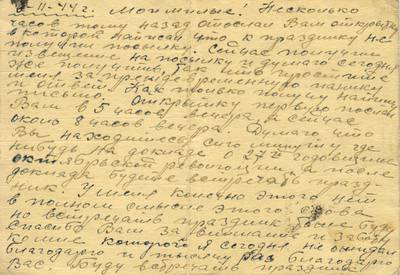 -II-44г. Мои милые! Несколько
часов тому назад отослал Вам открытку
в которой написал что к празднику не
получил посылку. Сейчас получил
извещение на посылку и думаю сегодня
же получить так что простите
меня за преждевременную панику
и ответ. Как только получу напишу
письмо. Открытку первую послал
Вам в 5 часов вечера, а сейчас
около 8 часов вечера. Думаю что
Вы находитесь сию минуту где
нибудь на докладе о 27й годовщине
октябрьской революции, а после
доклада будете встречать празд-
ник. У меня конечно этого нет
в полном смысле этого слова
но встречать праздник буду
Спасибо Вам за внимание и заботу
которого я сегодня не ожидал
благодарю и тысячу раз благодарю
Вас Буду встречать праздник